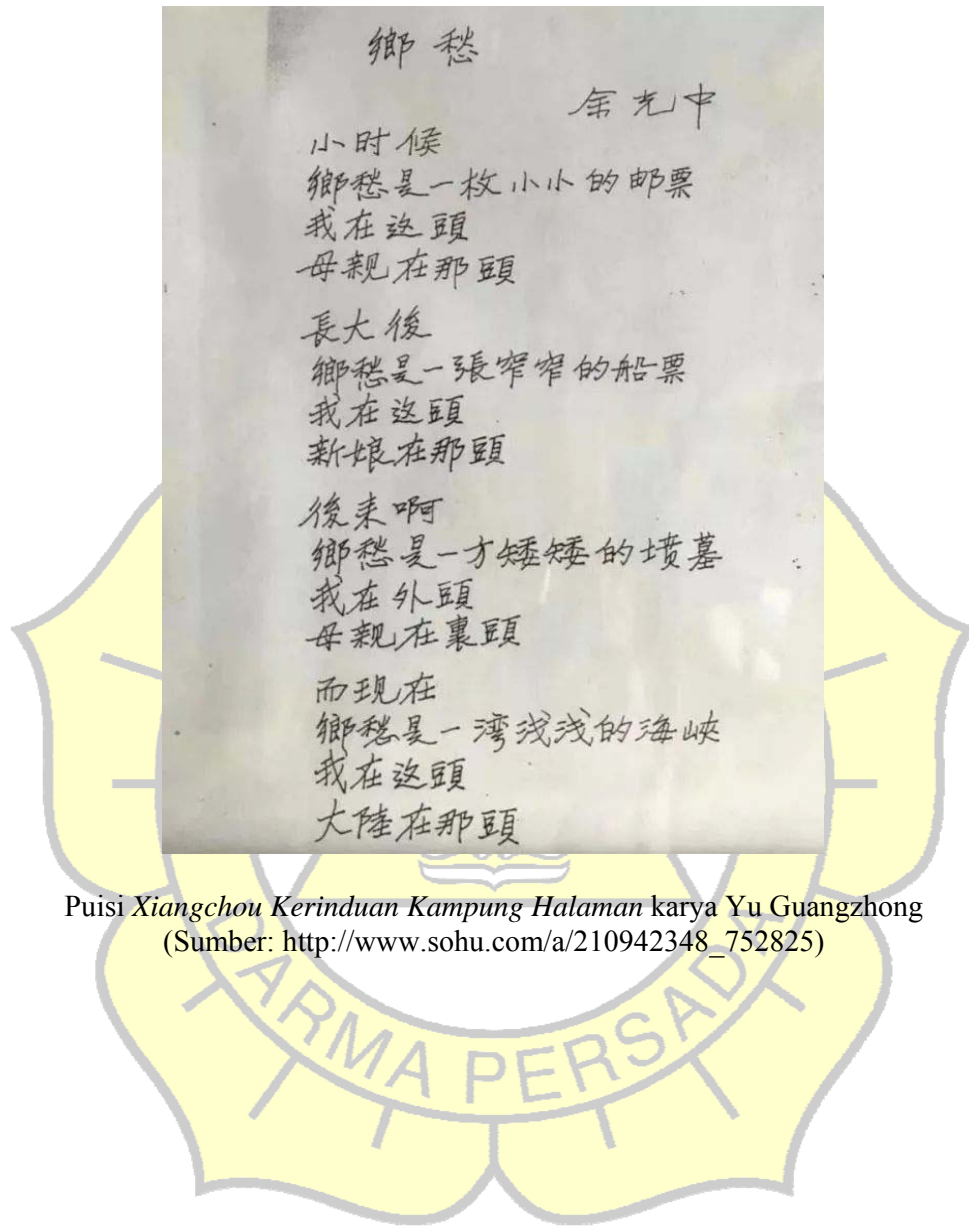 鄉愁
余光中
小时候
鄉愁是一枚小小的邮票
我在这頭
母親在那頭
長大後
鄉愁是一張窄窄的船票
我在这頭
新娘在那頭
後来啊
鄉愁是一方矮矮的墳墓
我在外頭
母親在裏頭
而现在
鄉愁是一湾浅浅的海峡
我在这頭
大陸在那頭
Puisi Xiangchou Kerinduan Kampung Halaman karya Yu Guangzhong
(Sumber: http://www.sohu.com/a/210942348_752825)
DARMA PERSADA